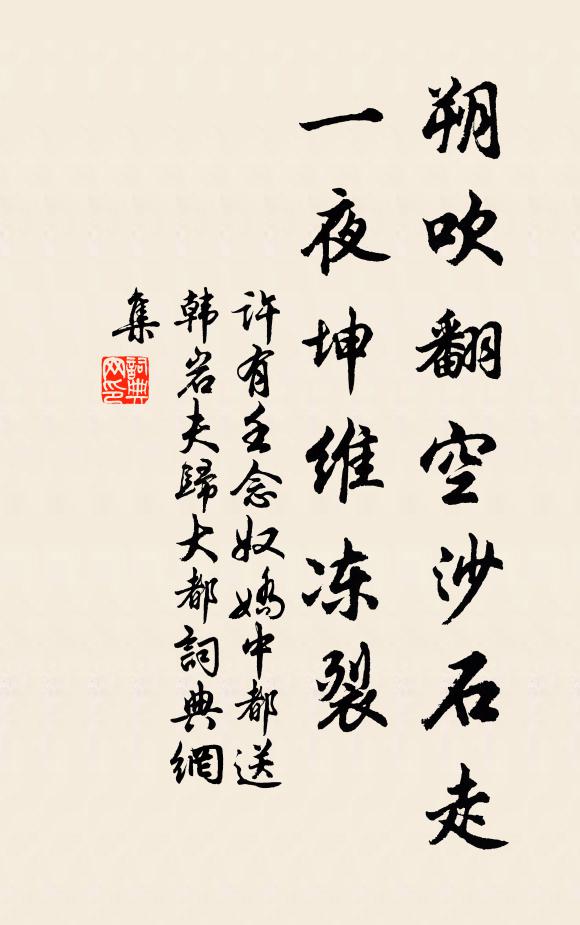 朔吹翻空沙石走
一夜坤维冻裂
许有壬念奴嬌中都送
韩岩夫歸大都詞典網
集
詞典
网印